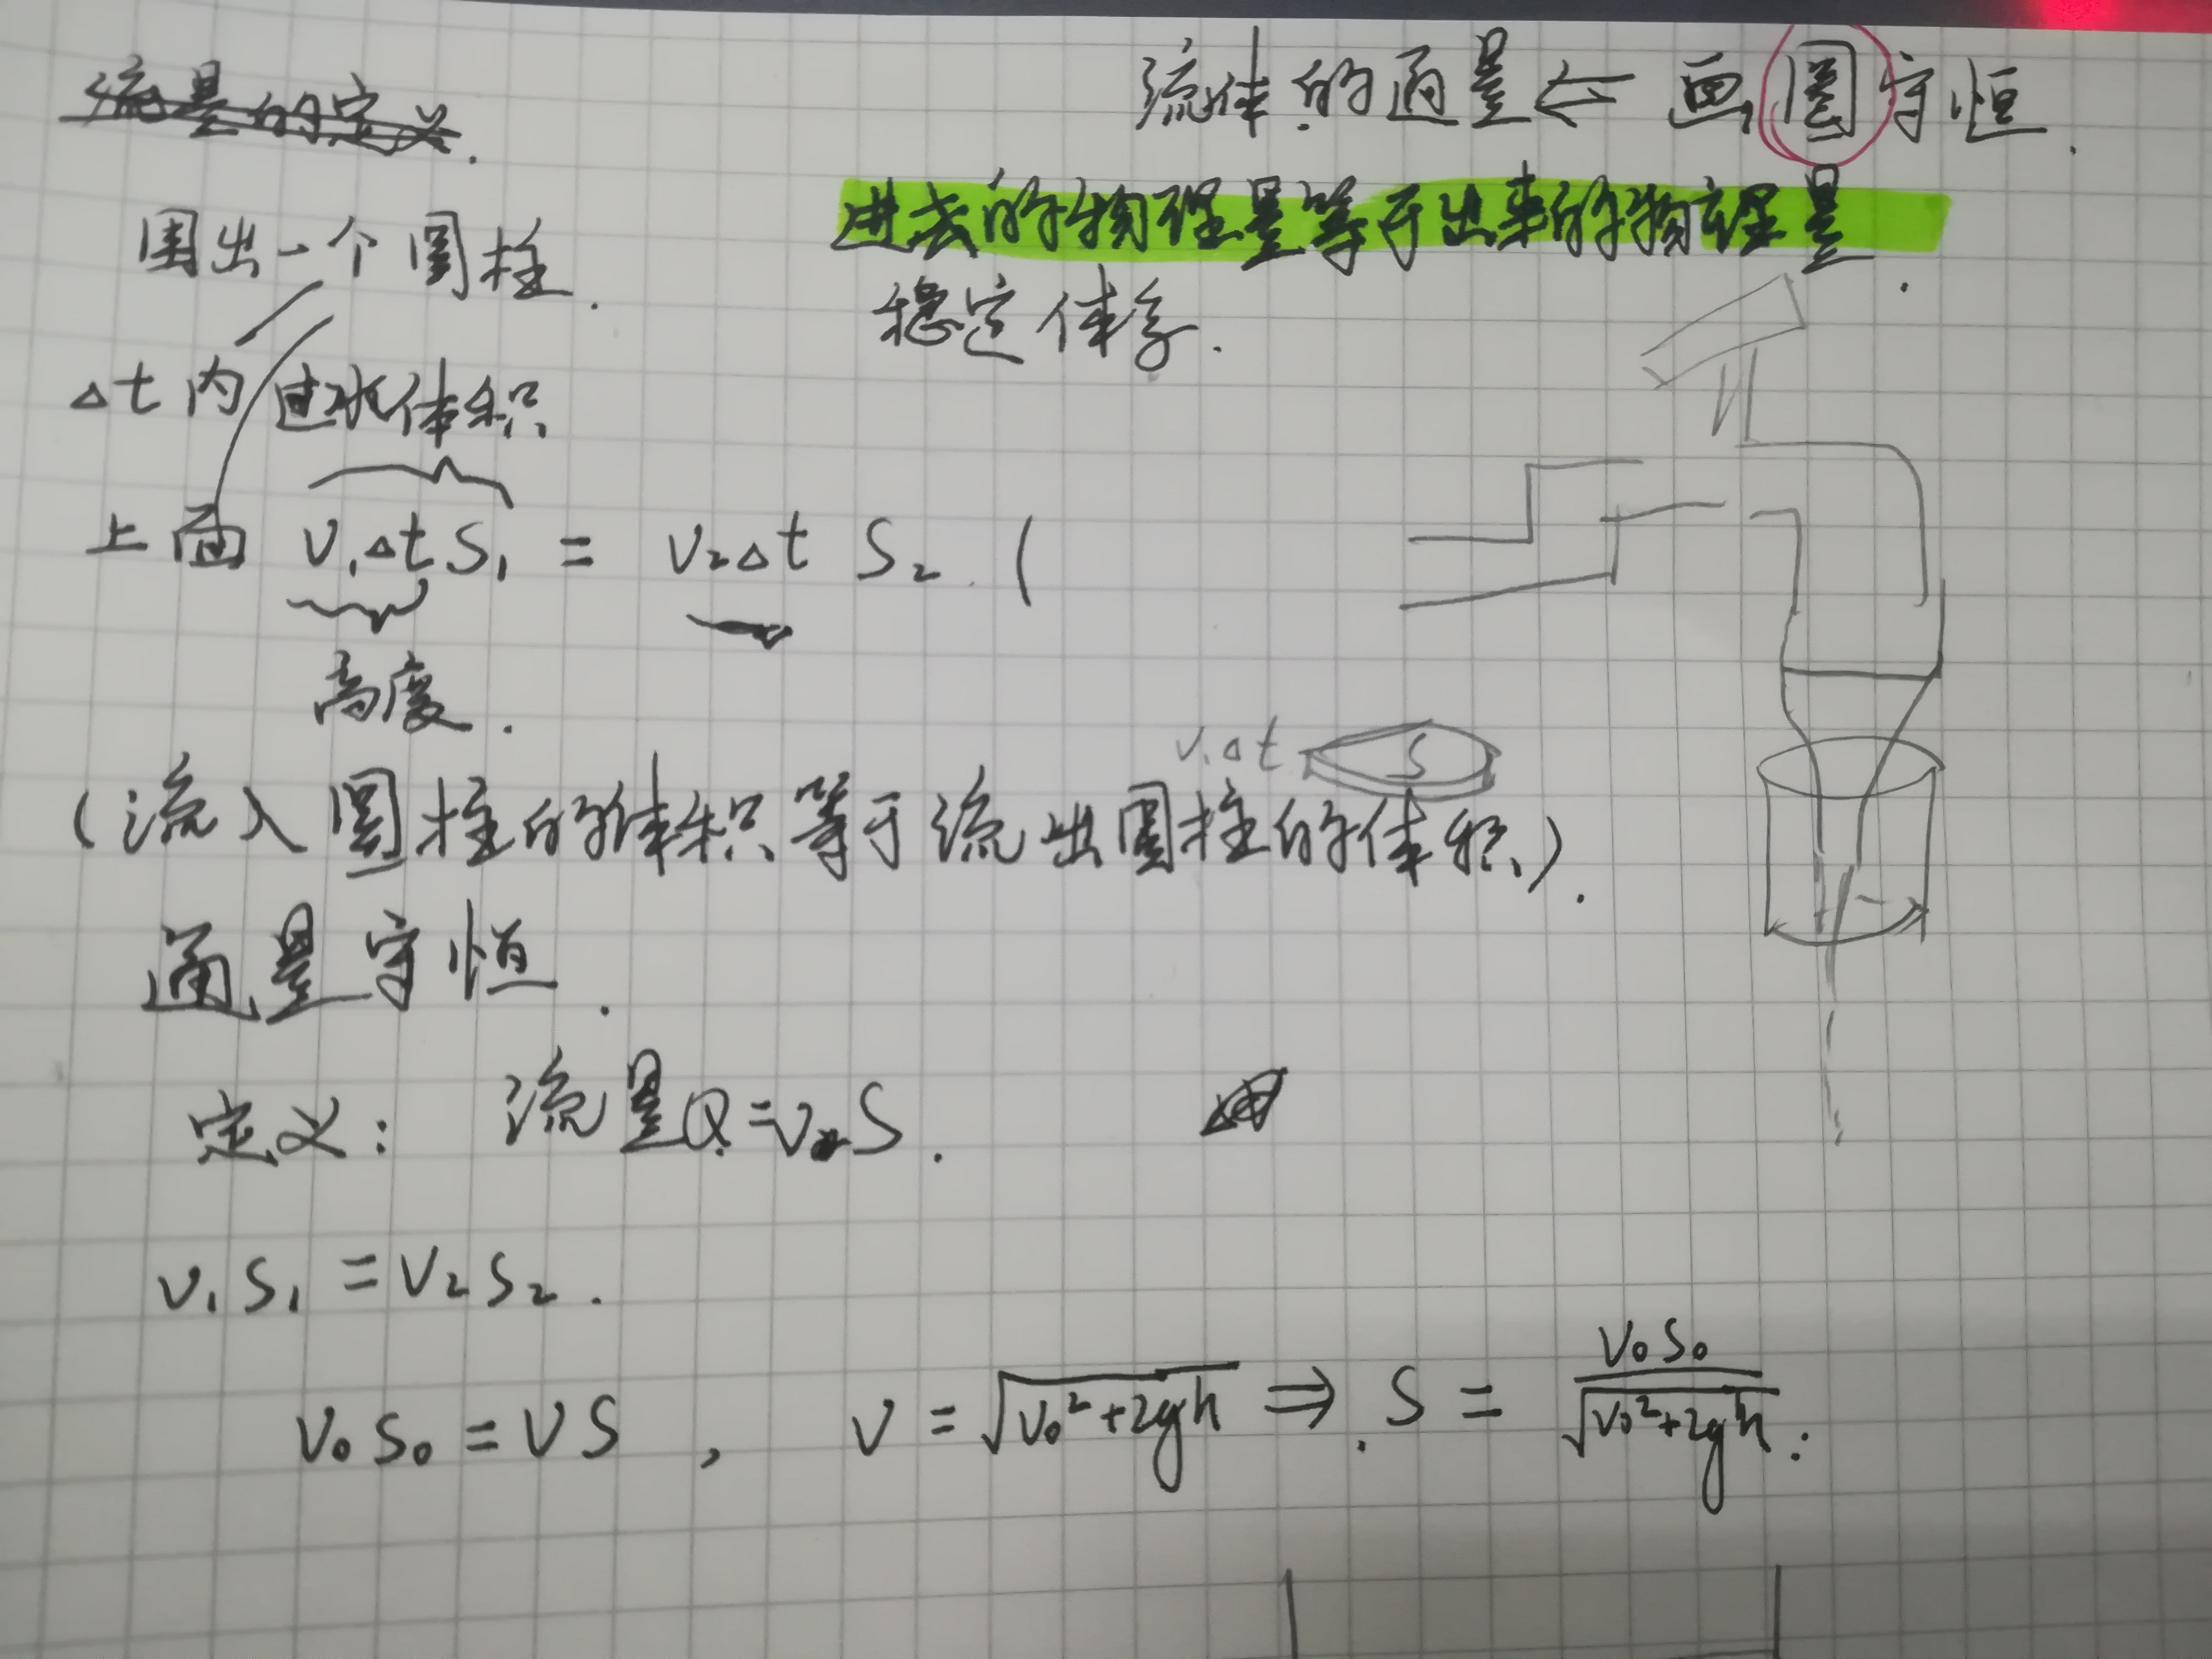 流量的定义.
流体的通量 ⇐ 画圈守恒.
进去的物理量等于出来的物理量.
围出一个圆柱.
稳定体系.
Δt内 过水体积
上面 v₁Δt S₁ = v₂Δt S₂. (
高度.
v₁Δt S
(流入圆柱的体积等于流出圆柱的体积).
通量守恒.
定义: 流量Q=vS.
v₁S₁=v₂S₂.
v₀S₀=vS, v=√(v₀²+2gh) ⇒ S = v₀S₀/√(v₀²+2gh).